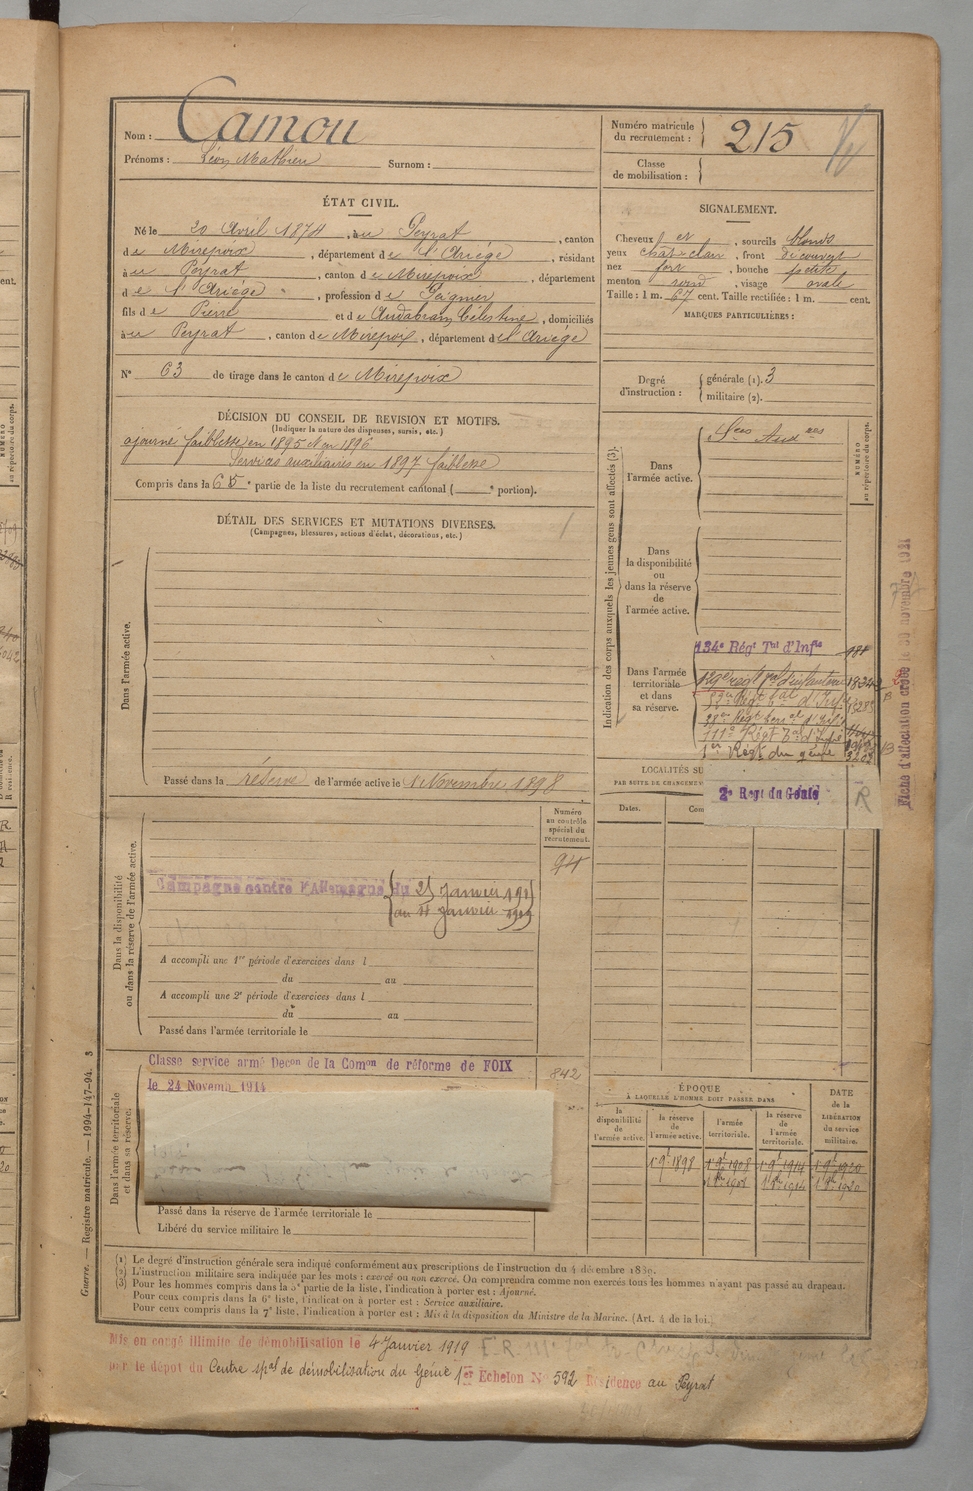 Nom : Camou
Prénoms : Léon Mathieu Surnom :
Numéro matricule du recrutement : 215
Classe de mobilisation :
ÉTAT CIVIL.
Né le 20 Avril 1874, à au Peyrat, canton
de Mirepoix, département de l'Ariège, résidant
à au Peyrat, canton de Mirepoix, département
de l'Ariège, profession de Peignier
fils de Pierre et de Audabram Célestine, domiciliés
à au Peyrat, canton de Mirepoix, département de l'Ariège
N° 63 de tirage dans le canton de Mirepoix
DÉCISION DU CONSEIL DE REVISION ET MOTIFS.
(Indiquer la nature des dispenses, sursis, etc.)
ajourné faiblesse en 1895 et en 1896
Services auxiliaires en 1897 faiblesse
Compris dans la 6 5e partie de la liste du recrutement cantonal ( e portion).
SIGNALEMENT.
Cheveux et, sourcils blonds
yeux chât-clair, front découvert
nez fort, bouche petite
menton rond, visage ovale
Taille : 1 m. 67 cent. Taille rectifiée : 1 m. cent.
MARQUES PARTICULIÈRES :
Degré d'instruction : générale (1). 3
militaire (2).
DÉTAIL DES SERVICES ET MUTATIONS DIVERSES.
(Campagnes, blessures, actions d'éclat, décorations, etc.)
Dans l'armée active.
Passé dans la réserve de l'armée active le 1 Novembre 1898
Indication des corps auxquels les jeunes gens sont affectés (3).
NUMÉRO au répertoire du corps.
Dans l'armée active.
Sces Auxres
Dans la disponibilité ou dans la réserve de l'armée active.
Dans l'armée territoriale et dans sa réserve.
134e Régt Tal d'Infie
129e régt tal d'infanterie
1er Régt du génie
2e Régt du Génie
R
LOCALITÉS SU
PAR SUITE DE CHANGEMEN
Dates.
Com
Fiche d'affectation créée le novembre 1921
Dans la disponibilité ou dans la réserve de l'armée active.
Numéro au contrôle spécial du recrutement.
94
Campagne contre l'Allemagne du 25 Janvier 191
au 4 Janvier 1919
A accompli une 1re période d'exercices dans l
du au
A accompli une 2e période d'exercices dans l
du au
Passé dans l'armée territoriale le
Dans l'armée territoriale et dans sa réserve.
Classé service armé Decon de la Comon de réforme de FOIX
le 24 Novemb. 1914
842
Passé dans la réserve de l'armée territoriale le
Libéré du service militaire le
ÉPOQUE
À LAQUELLE L'HOMME DOIT PASSER DANS
la disponibilité de l'armée active.
la réserve de l'armée active.
l'armée territoriale.
la réserve de l'armée territoriale.
DATE de la LIBÉRATION du service militaire.
1 9bre 1898 1 9bre 1908 1 9bre 1914 1 9bre 1920
Guerre. — Registre matricule. — 1994-147-94. 3
(1) Le degré d'instruction générale sera indiqué conformément aux prescriptions de l'instruction du 4 décembre 1889.
(2) L'instruction militaire sera indiquée par les mots : exercé ou non exercé. On comprendra comme non exercés tous les hommes n'ayant pas passé au drapeau.
(3) Pour les hommes compris dans la 5e partie de la liste, l'indication à porter est : Ajourné.
Pour ceux compris dans la 6e liste, l'indication à porter est : Service auxiliaire.
Pour ceux compris dans la 7e liste, l'indication à porter est : Mis à la disposition du Ministre de la Marine. (Art. 4 de la loi.)
Mis en congé illimité de démobilisation le 4 Janvier 1919
par le dépôt du Centre spal de démobilisation du Génie 1er Echelon No 592 Résidence au Peyrat